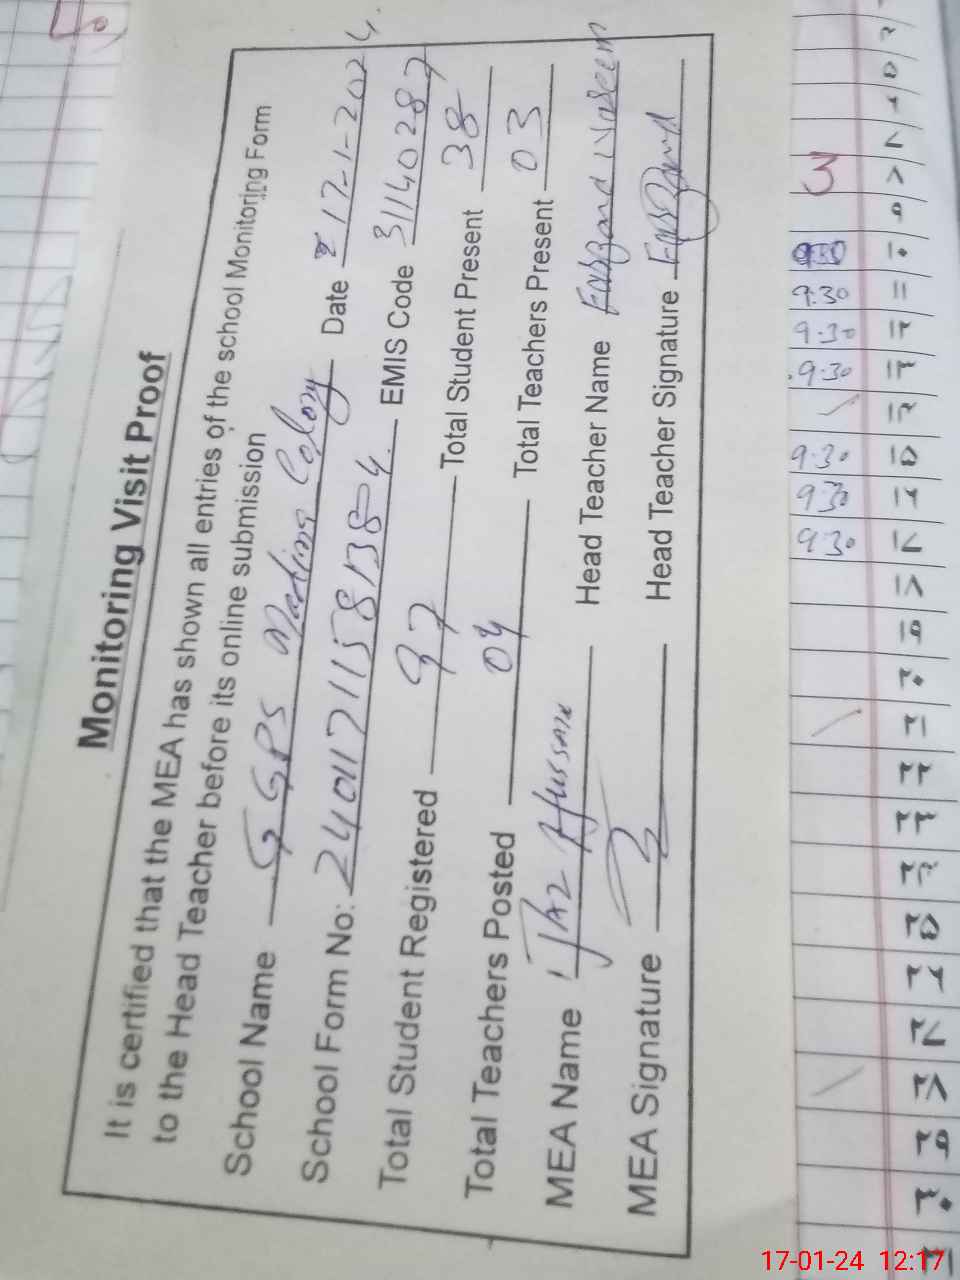 Monitoring Visit Proof
It is certified that the MEA has shown all entries of the school Monitoring Form
to the Head Teacher before its online submission
School Name GGPS Colony Date 17-1-2024.
School Form No: EMIS Code 31140287
Total Student Registered 97 Total Student Present 38
Total Teachers Posted 04 Total Teachers Present 03
MEA Name Hussain Head Teacher Name
MEA Signature Head Teacher Signature
3
9:30
9.30
9.30
9.30
9.30
9.30
۷
۸
۹
۱۰
۱۱
۱۲
۱۳
۱۴
۱۵
۱۶
۱۷
۱۸
۱۹
۲۰
۲۱
۲۲
۲۳
۲۴
۲۵
۲۶
۲۷
۲۸
۲۹
۳۰
۳۱
17-01-24 12:17